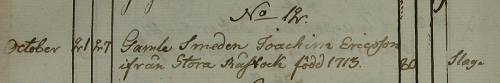 No 12.
October 21 27 Gamle Smeden Joachim Ericsson
ifrån Stora född 1713. 80 Slag.